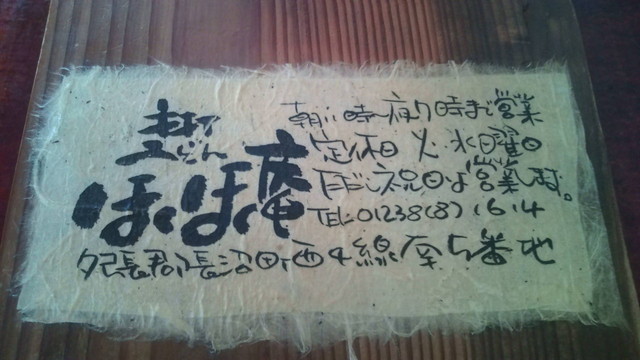 ほくほく庵
朝11時〜夜7時まで営業
定休日 火・水曜日
ただし祝日は営業します。
TEL 01238(8)1614
夕張郡長沼町西4線南5番地